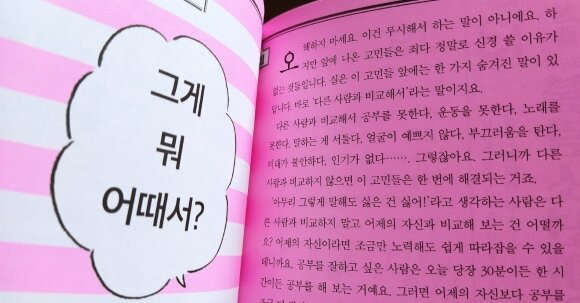 그게
뭐
어때서?
오해하지 마세요. 이건 무시해서 하는 말이 아니에요. 하
지만 앞에 나온 고민들은 죄다 정말로 신경 쓸 이유가
없는 것들입니다. 실은 이 고민들 앞에는 한 가지 숨겨진 말이 있
답니다. 바로 '다른 사람과 비교해서'라는 말이지요.
다른 사람과 비교해서 공부를 못한다, 운동을 못한다, 노래를
못한다, 말하는 게 서툴다, 얼굴이 예쁘지 않다, 부끄러움을 탄다,
미래가 불안하다, 인기가 없다……. 그렇잖아요. 그러니까 다른
사람과 비교하지 않으면 이 고민들은 한 번에 해결되는 거죠.
'아무리 그렇게 말해도 싫은 건 싫어!'라고 생각하는 사람은 다
른 사람과 비교하지 말고 어제의 자신과 비교해 보는 건 어떨까
요? 어제의 자신이라면 조금만 노력해도 쉽게 따라잡을 수 있을
테니까요. 공부를 잘하고 싶은 사람은 오늘 당장 30분이든 한 시
간이든 공부를 해 보는 거예요. 그러면 어제의 자신보다 공부를